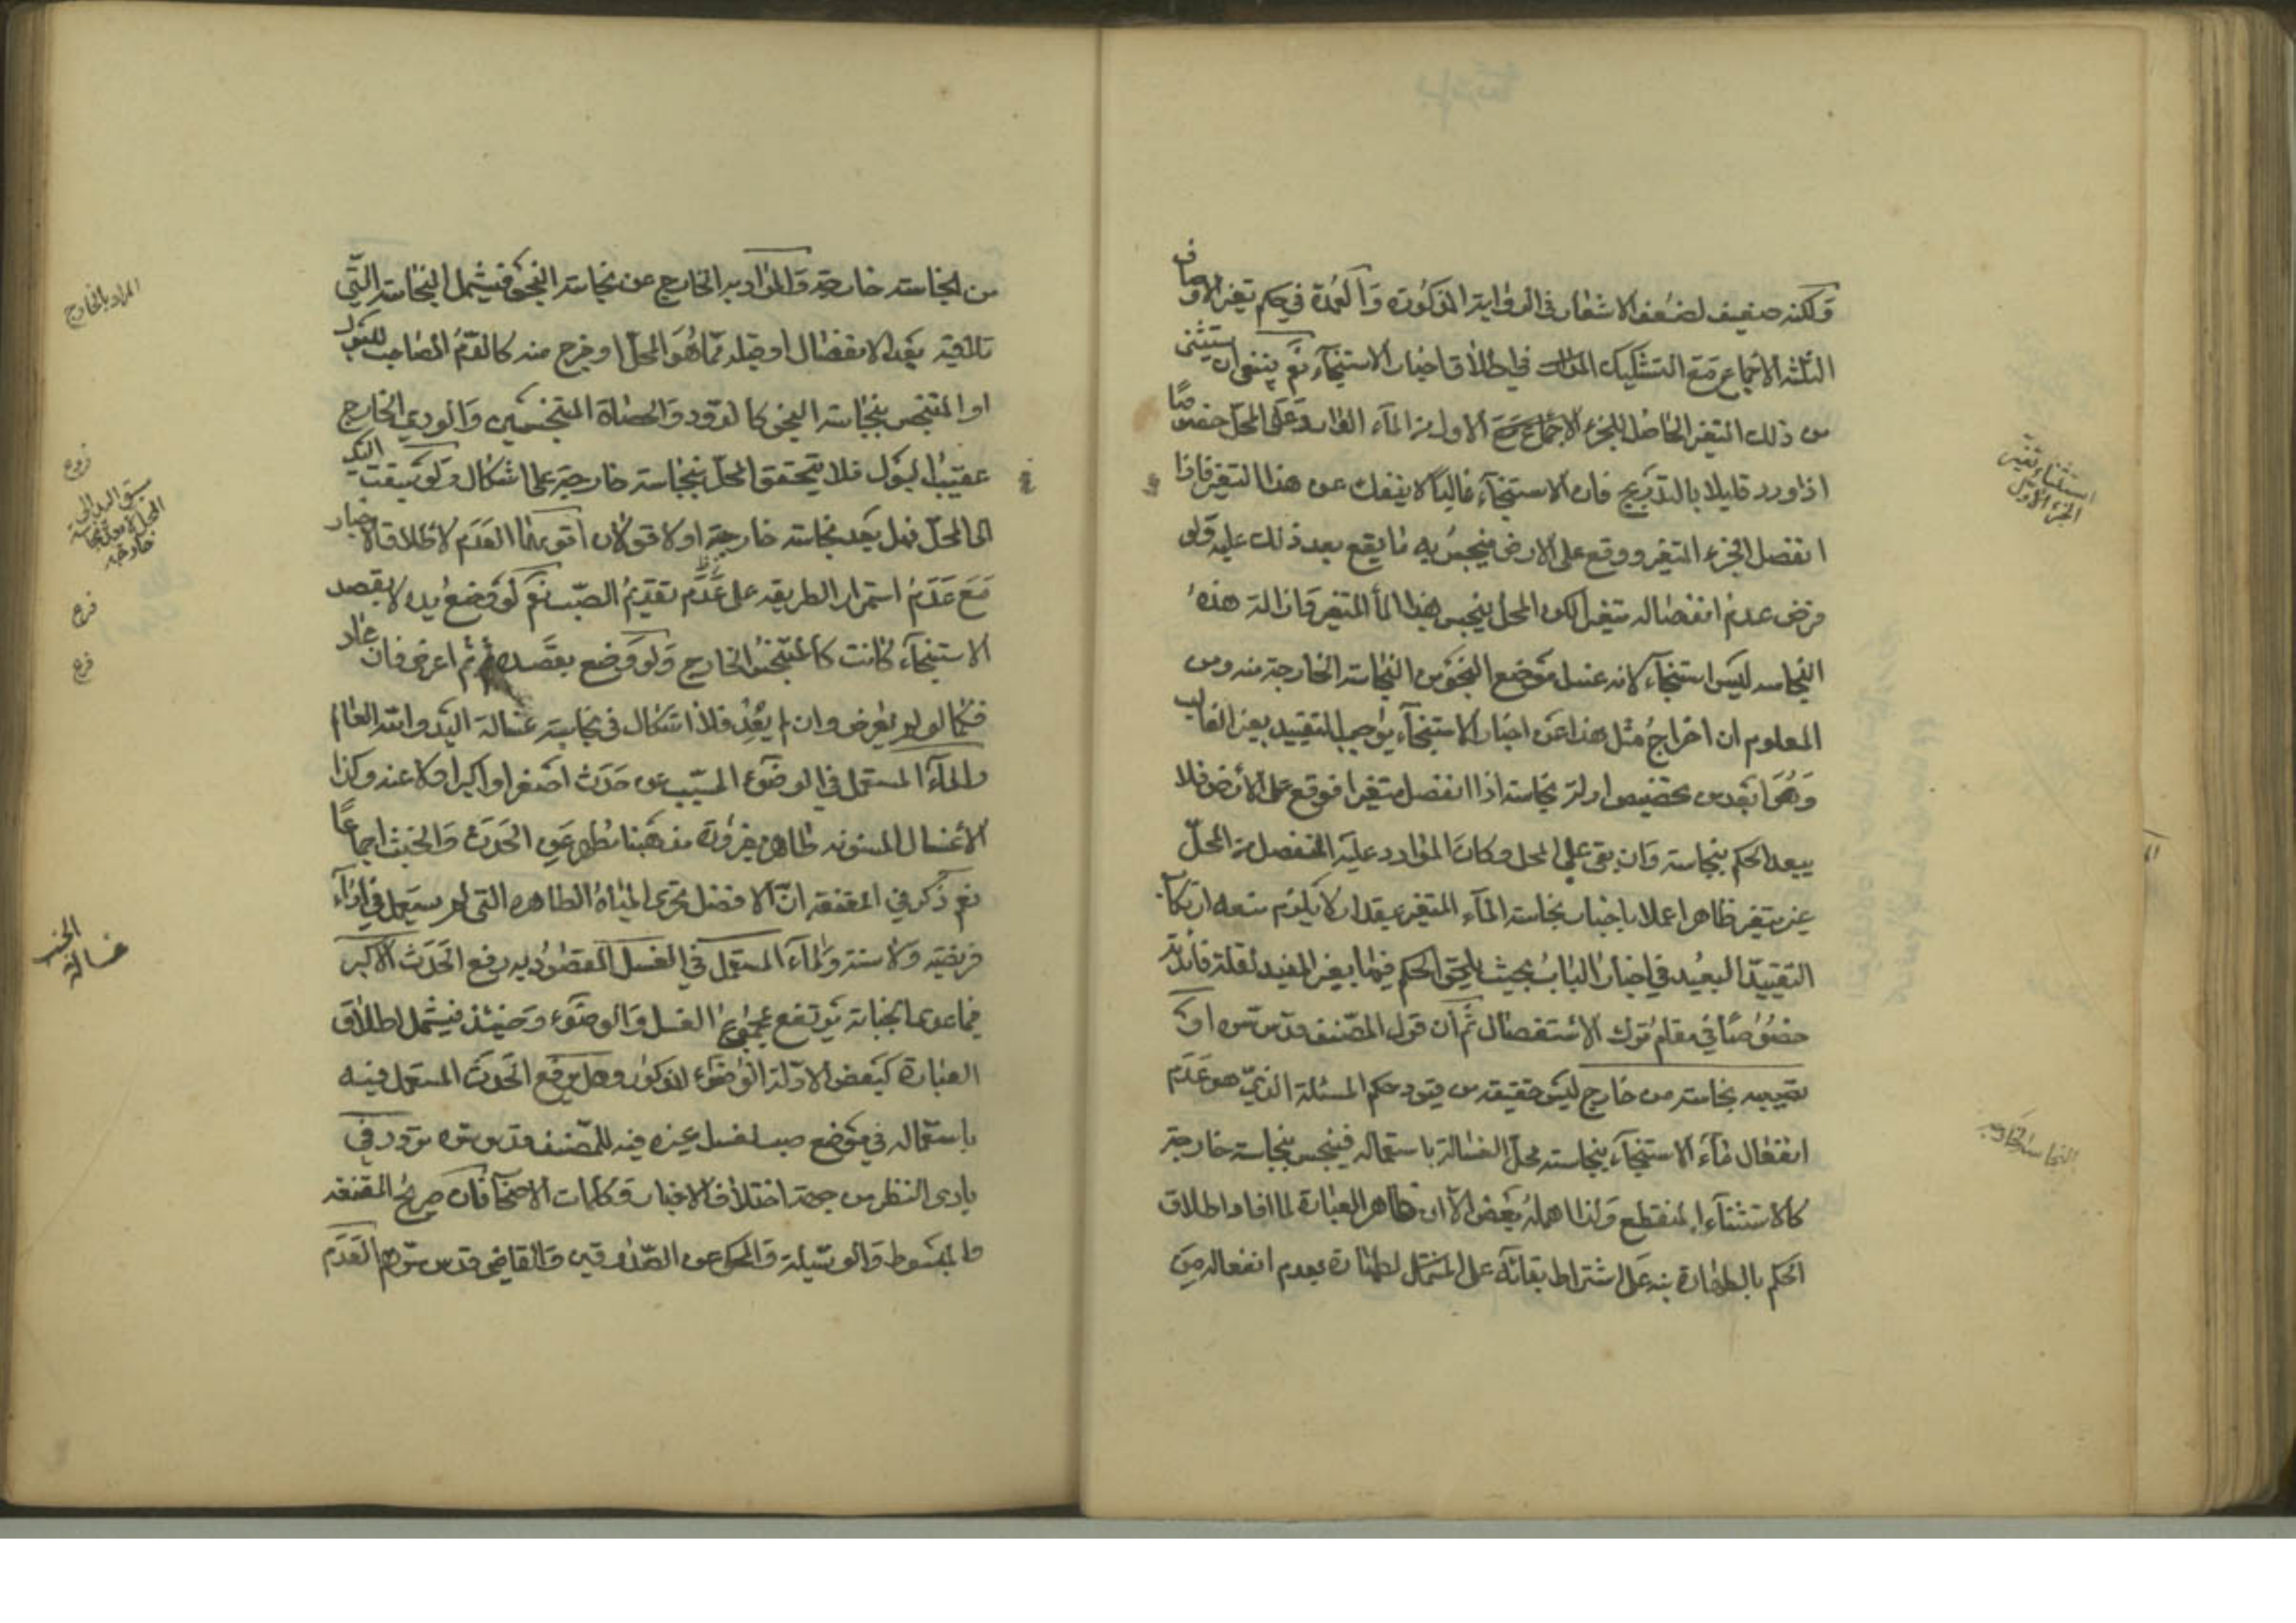 ولكنه ضعيف لضعف الاشعار في الرواية المذكورة والعمدة في حكم تغير الاوصاف
الثلثة الاجماع مع التشكيك في اطلاق اخبار الاستنجاء نعم ينبغى ان يستثنى
من ذلك التغير الحاصل للجزء الاول من الماء الوارد على المحل خصوصًا
اذا ورد قليلا بالتدريج فان الاستنجاء غالبًا لا ينفك عن هذا التغير فاذا
انفصل الجزء المتغير ووقع على الارض فينجس به ما يقع بعد ذلك عليه ولو
فرض عدم انفصاله متغير لكن المحل ينجس بهذا الماء المتغير فازالة هذه
النجاسه ليس استنجاء لانه غسل موضع النجو من النجاسة الخارجة منه ومن
المعلوم ان اخراج مثل هذا عن اخبار الاستنجاء يوجب التقييد بغير الغالب
وهو ابعد من تخصيص ادلة نجاسته اذا انفصل متغيرا فوقع على الارض فلا
يبعد الحكم بنجاسته وان بقى على المحل وكان الوارد عليه المنفصل من المحل
غير متغير ظاهرا عملا باخبار نجاسة الماء المتغير بقدر لا يلزم منعه ارتكاب
التقييد البعيد في اخبار الباب بحيث يلحق الحكم فيها بغير المفيد لقلة فائدته
خصوصًا في مقام ترك الاستفصال ثم ان قول المصنف قدس سره او
تصيبه نجاسة من خارج ليس حقيقة من قيود حكم المسئلة الذي هو عدم
انفعال ماء الاستنجاء بنجاسة محل الغسالة باستعماله فينجس بنجاسة خارجة
كالاستثناء المنقطع ولذا اهمله بعض الا ان ظاهر العبارة لما افاد اطلاق
الحكم بالطهارة نبه على اشتراط بقائه على الطهارة بعدم انفعاله من
استثناء تغير
الجزء الاول
من نجاسة خارجة والمراد به الخارج عن نجاسة النجو فيشمل النجاسة التي
تلاقيه بعد الانفصال او قبله مما هو المحل او خرج منه كالدم المصاحب للبول
او المتنجس بنجاسة النجو كالدود والحصاة المتنجسين والودي الخارج
عقيب البول فلا يتحقق المحل بنجاسة خارجة على اشكال ولو سبقت اليد
الى المحل فهل يعد نجاسة خارجة او لا قولان اقويهما العدم لاطلاق الاخبار
مع عدم استمرار الطريقه على عدم تقديم الصب نعم لو وضع يده لا بقصد
الاستنجاء كانت كالمتنجس الخارج ولو وضع بقصده ثم اعرض فان عاد
فكما لو لم يعرض وان لم يعد فلا اشكال في نجاسة غسالة اليد والله العالم
والماء المستعمل في الوضوء المسبب عن حدث اصغر او اكبر او لا عنه وكذا
الاغسال المسنونه طاهر بضرورة مذهبنا مطهر عن الحدث والخبث اجماعًا
نعم ذكر في المقنعة ان الافضل تحرى المياه الطاهره التى لم يستعمل في اداء
فريضة ولا سنة والماء المستعمل في الغسل المقصود به رفع الحدث الاكبر
فما عدى الجنابة يرتفع بمجموع الغسل والوضوء وحينئذ فيشمل اطلاق
العبارة كبعض الادلة الوضوء المذكور وهل يرفع الحدث المستعمل فيه
باستعماله في موضع صب لغسل غيره فيه للمصنف قدس سره تردد في
بادى النظر من جهة اختلاف الاخبار وكلمات الاصحاب فان صريح المقنعه
والمبسوط والوسيلة والمحكى عن الصدوقين والقاضى قدس سرهم العدم
المراد بالخارج
فروع
سبق اليد الى
خارجة
فرع
فرع
غسالة